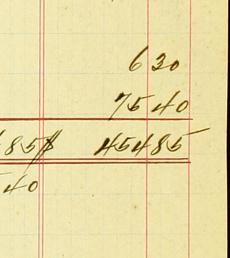 630
7540
485$ 45485
40